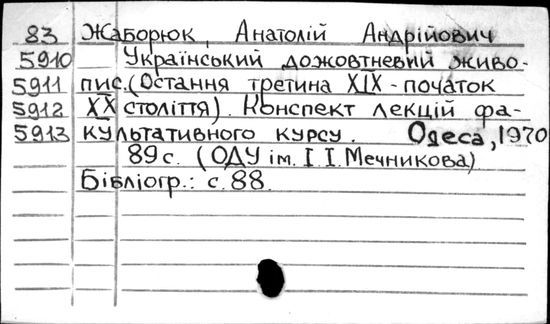 83 Жаборюк, Анатолій Андрійович
5910 Український дожовтневий живо-
5911 пис. (Остання третина XIX - початок
5912 XX століття). Конспект лекцій фа-
5913 культативного курсу. Одеса, 1970
89 с. (ОДУ ім. І. І. Мечникова)
Бібліогр.: с. 88.